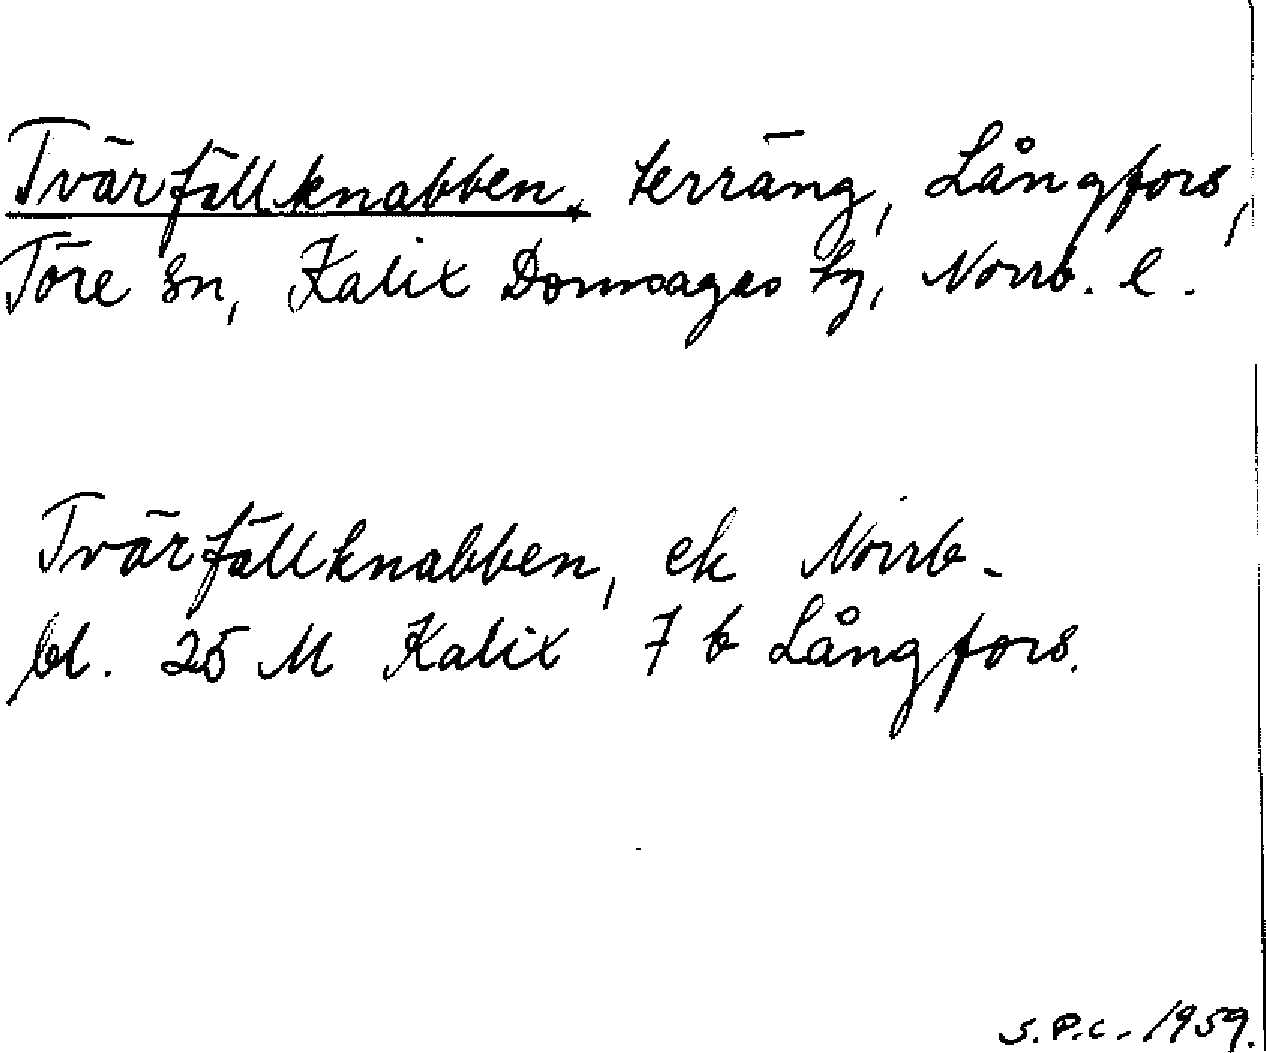 Tvärfällknabben, terräng, Långfors,
Töre sn, Kalix Domsagas tg, Norrb. l.
Tvärfällknabben, ek Norrb-
bl. 25 M Kalix 7 b Långfors.
S.P.C. 1959.